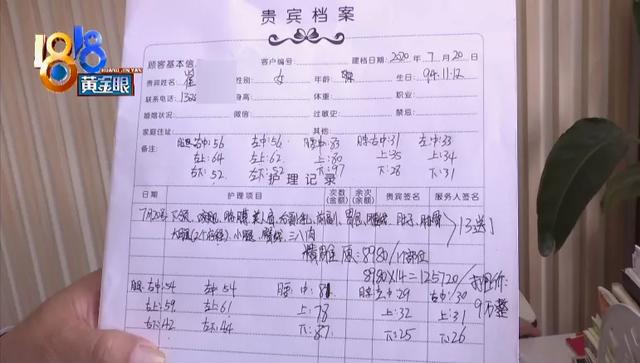 1818
黄金眼
HUANG JIN YAN
贵宾档案
顾客基本信 客户编号: 建档日期: 2020 年 7 月 20 日
贵宾姓名: 崔 性别: 女 年龄: 生日: 94.11.12
联系电话: 132 身高: 体重: 职业:
婚姻状况: 微信: 过敏史: 禁忌:
家庭住址: 其他:
备注: 腿 右中:56 左中:56 腰中:83 胳右中:31 左中:33
右上:64 左上:62 上:80 上:35 上:34
右下:52 左下:52 下:97 下:28 下:31
护理记录
日期 护理项目 次数(金额) 余次(余额) 贵宾签名 服务人签名
7月20号 13送1
大腿(2个部位)、小腿、臀
原:8980/1个部位
8980×14=125720/ 价:
9万整
腿 右中:54 左中:54 腰 中:81 胳右中29 左中:30
右上:59 左上:61 上:78 上:32 上:31
右下:42 左下:44 下:87 下:25 下:26